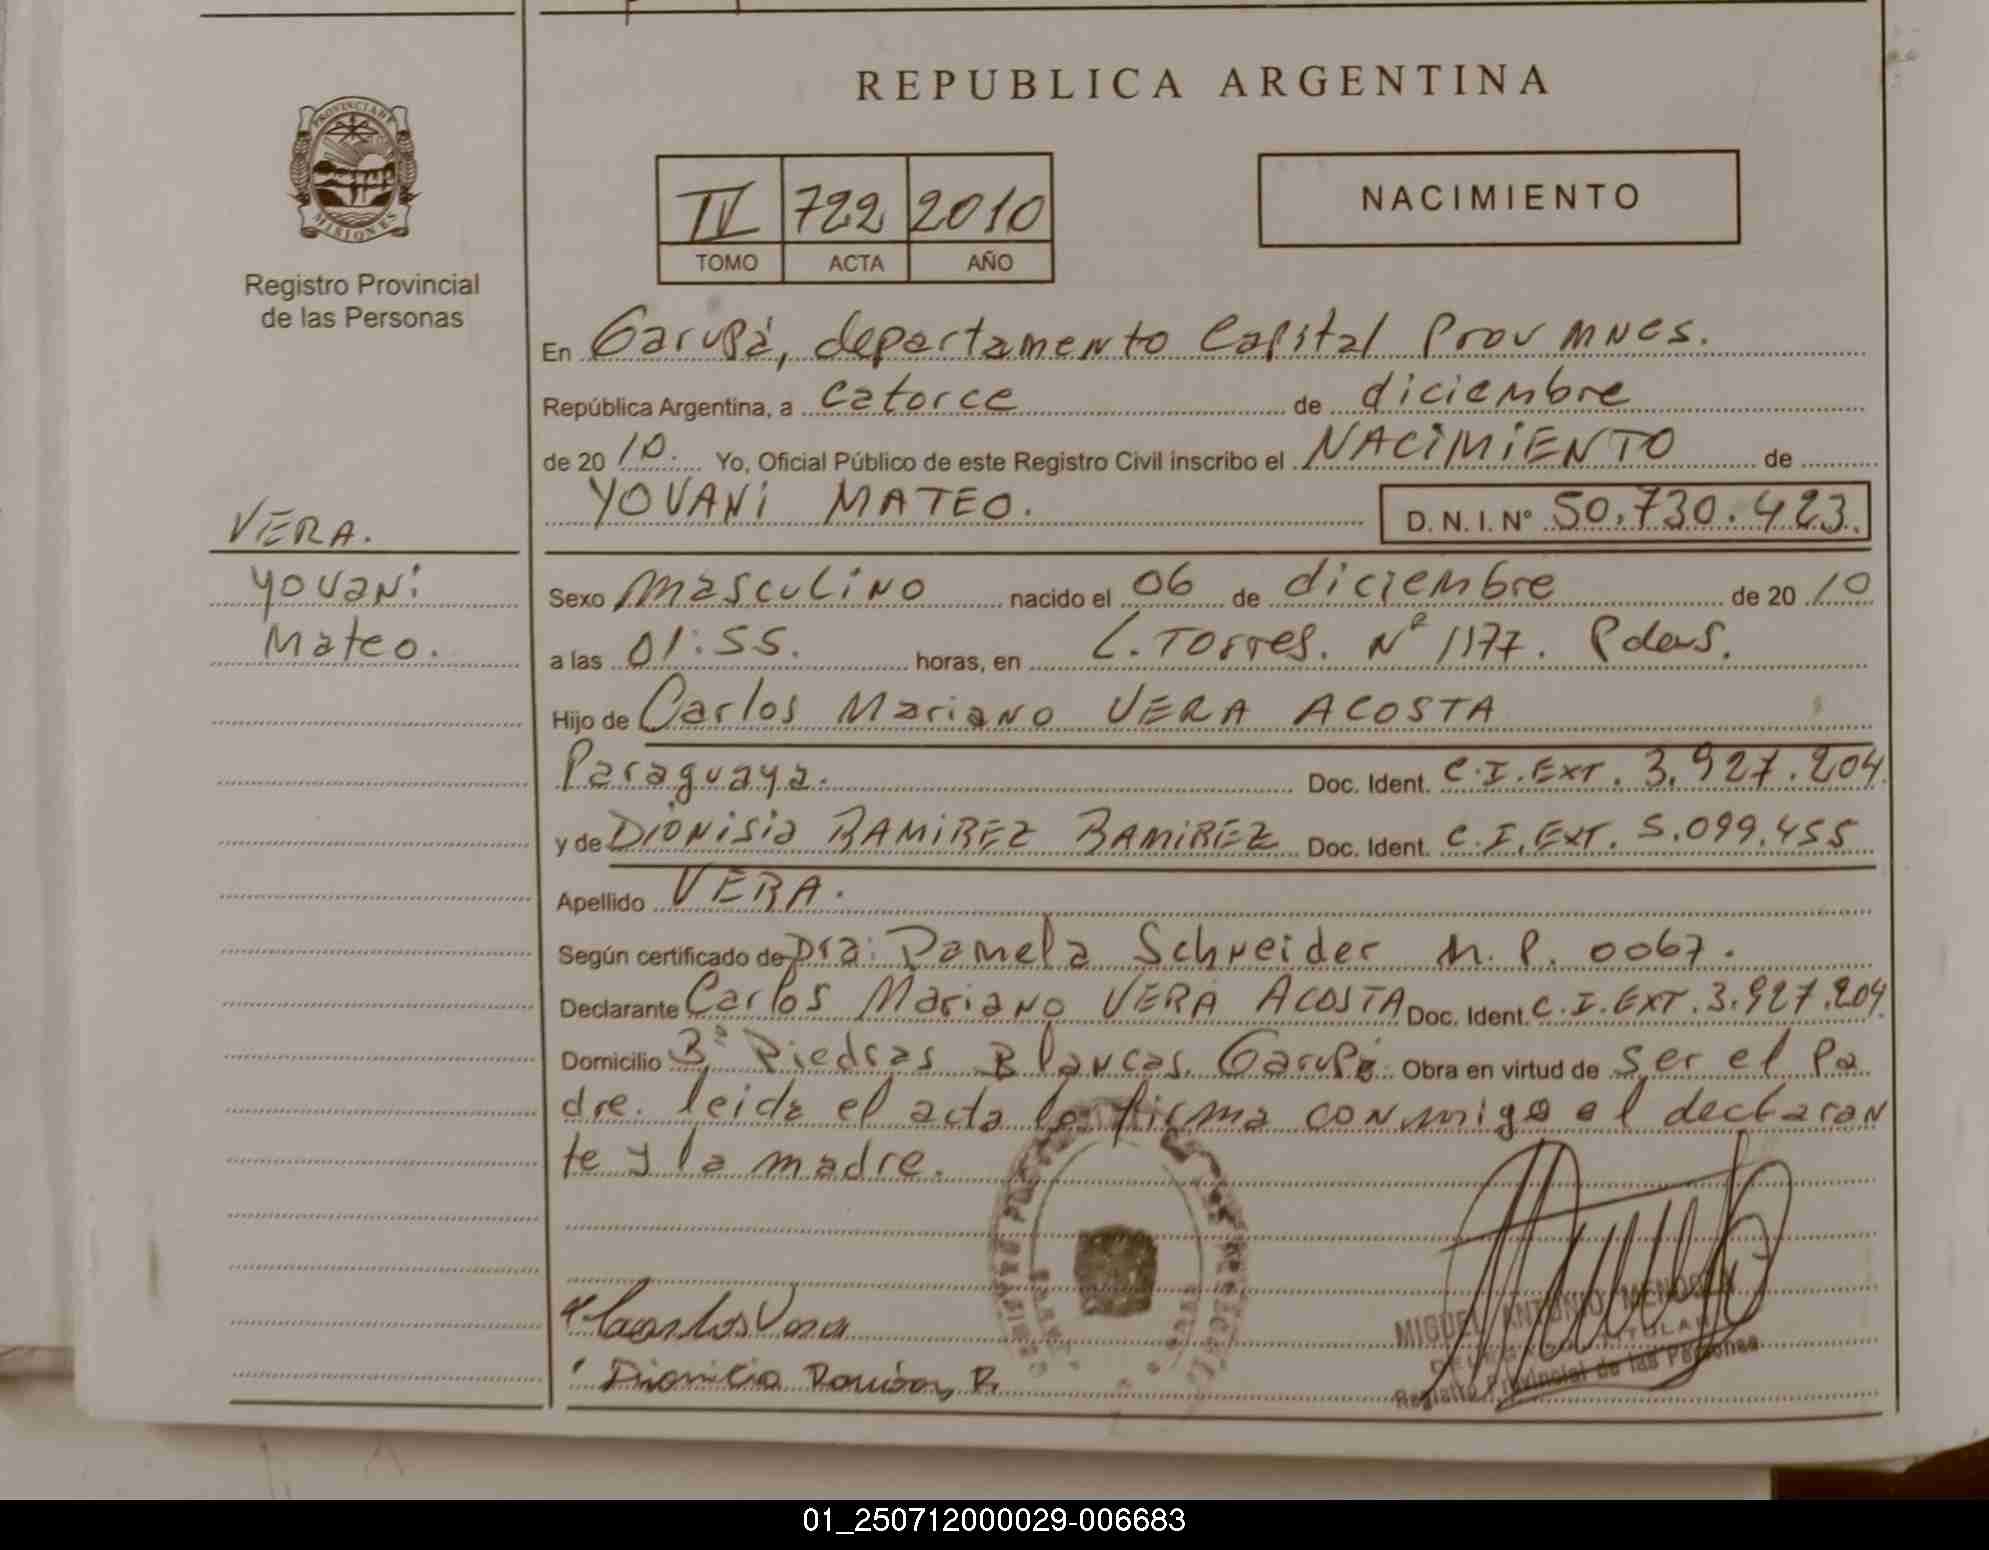 REPUBLICA ARGENTINA
PROVINCIA DE
MISIONES
Registro Provincial
de las Personas
IV 722 2010
TOMO ACTA AÑO
NACIMIENTO
En Garupá, departamento Capital Prov MNES.
República Argentina, a catorce de diciembre
de 2010. Yo, Oficial Público de este Registro Civil inscribo el NACIMIENTO de
YOVANI MATEO. D. N. I. Nº 50.730.423.
VERA.
Yovani
Mateo.
Sexo masculino nacido el 06 de diciembre de 2010
a las 01:55. horas, en L. Torres. Nº 1177. Pdas.
Hijo de Carlos Mariano VERA ACOSTA
Paraguaya. Doc. Ident. C.I.EXT. 3.927.204
y de DIONISIA RAMIREZ RAMIREZ Doc. Ident. C.I.EXT. 5.099.455
Apellido VERA.
Según certificado de Dra: Pamela Schneider M.P. 0067.
Declarante Carlos Mariano VERA ACOSTA Doc. Ident. C.I.EXT. 3.927.204
Domicilio Bº Piedras Blancas, Garupá Obra en virtud de ser el Pa
dre. leida el acta la firma conmigo el declaran
te y la madre.
Carlos Vera
Dionicia Ramirez R.
MIGUEL ANTONIO MENDOZA
TITULAR
Registro Provincial de las Personas
01_250712000029-006683